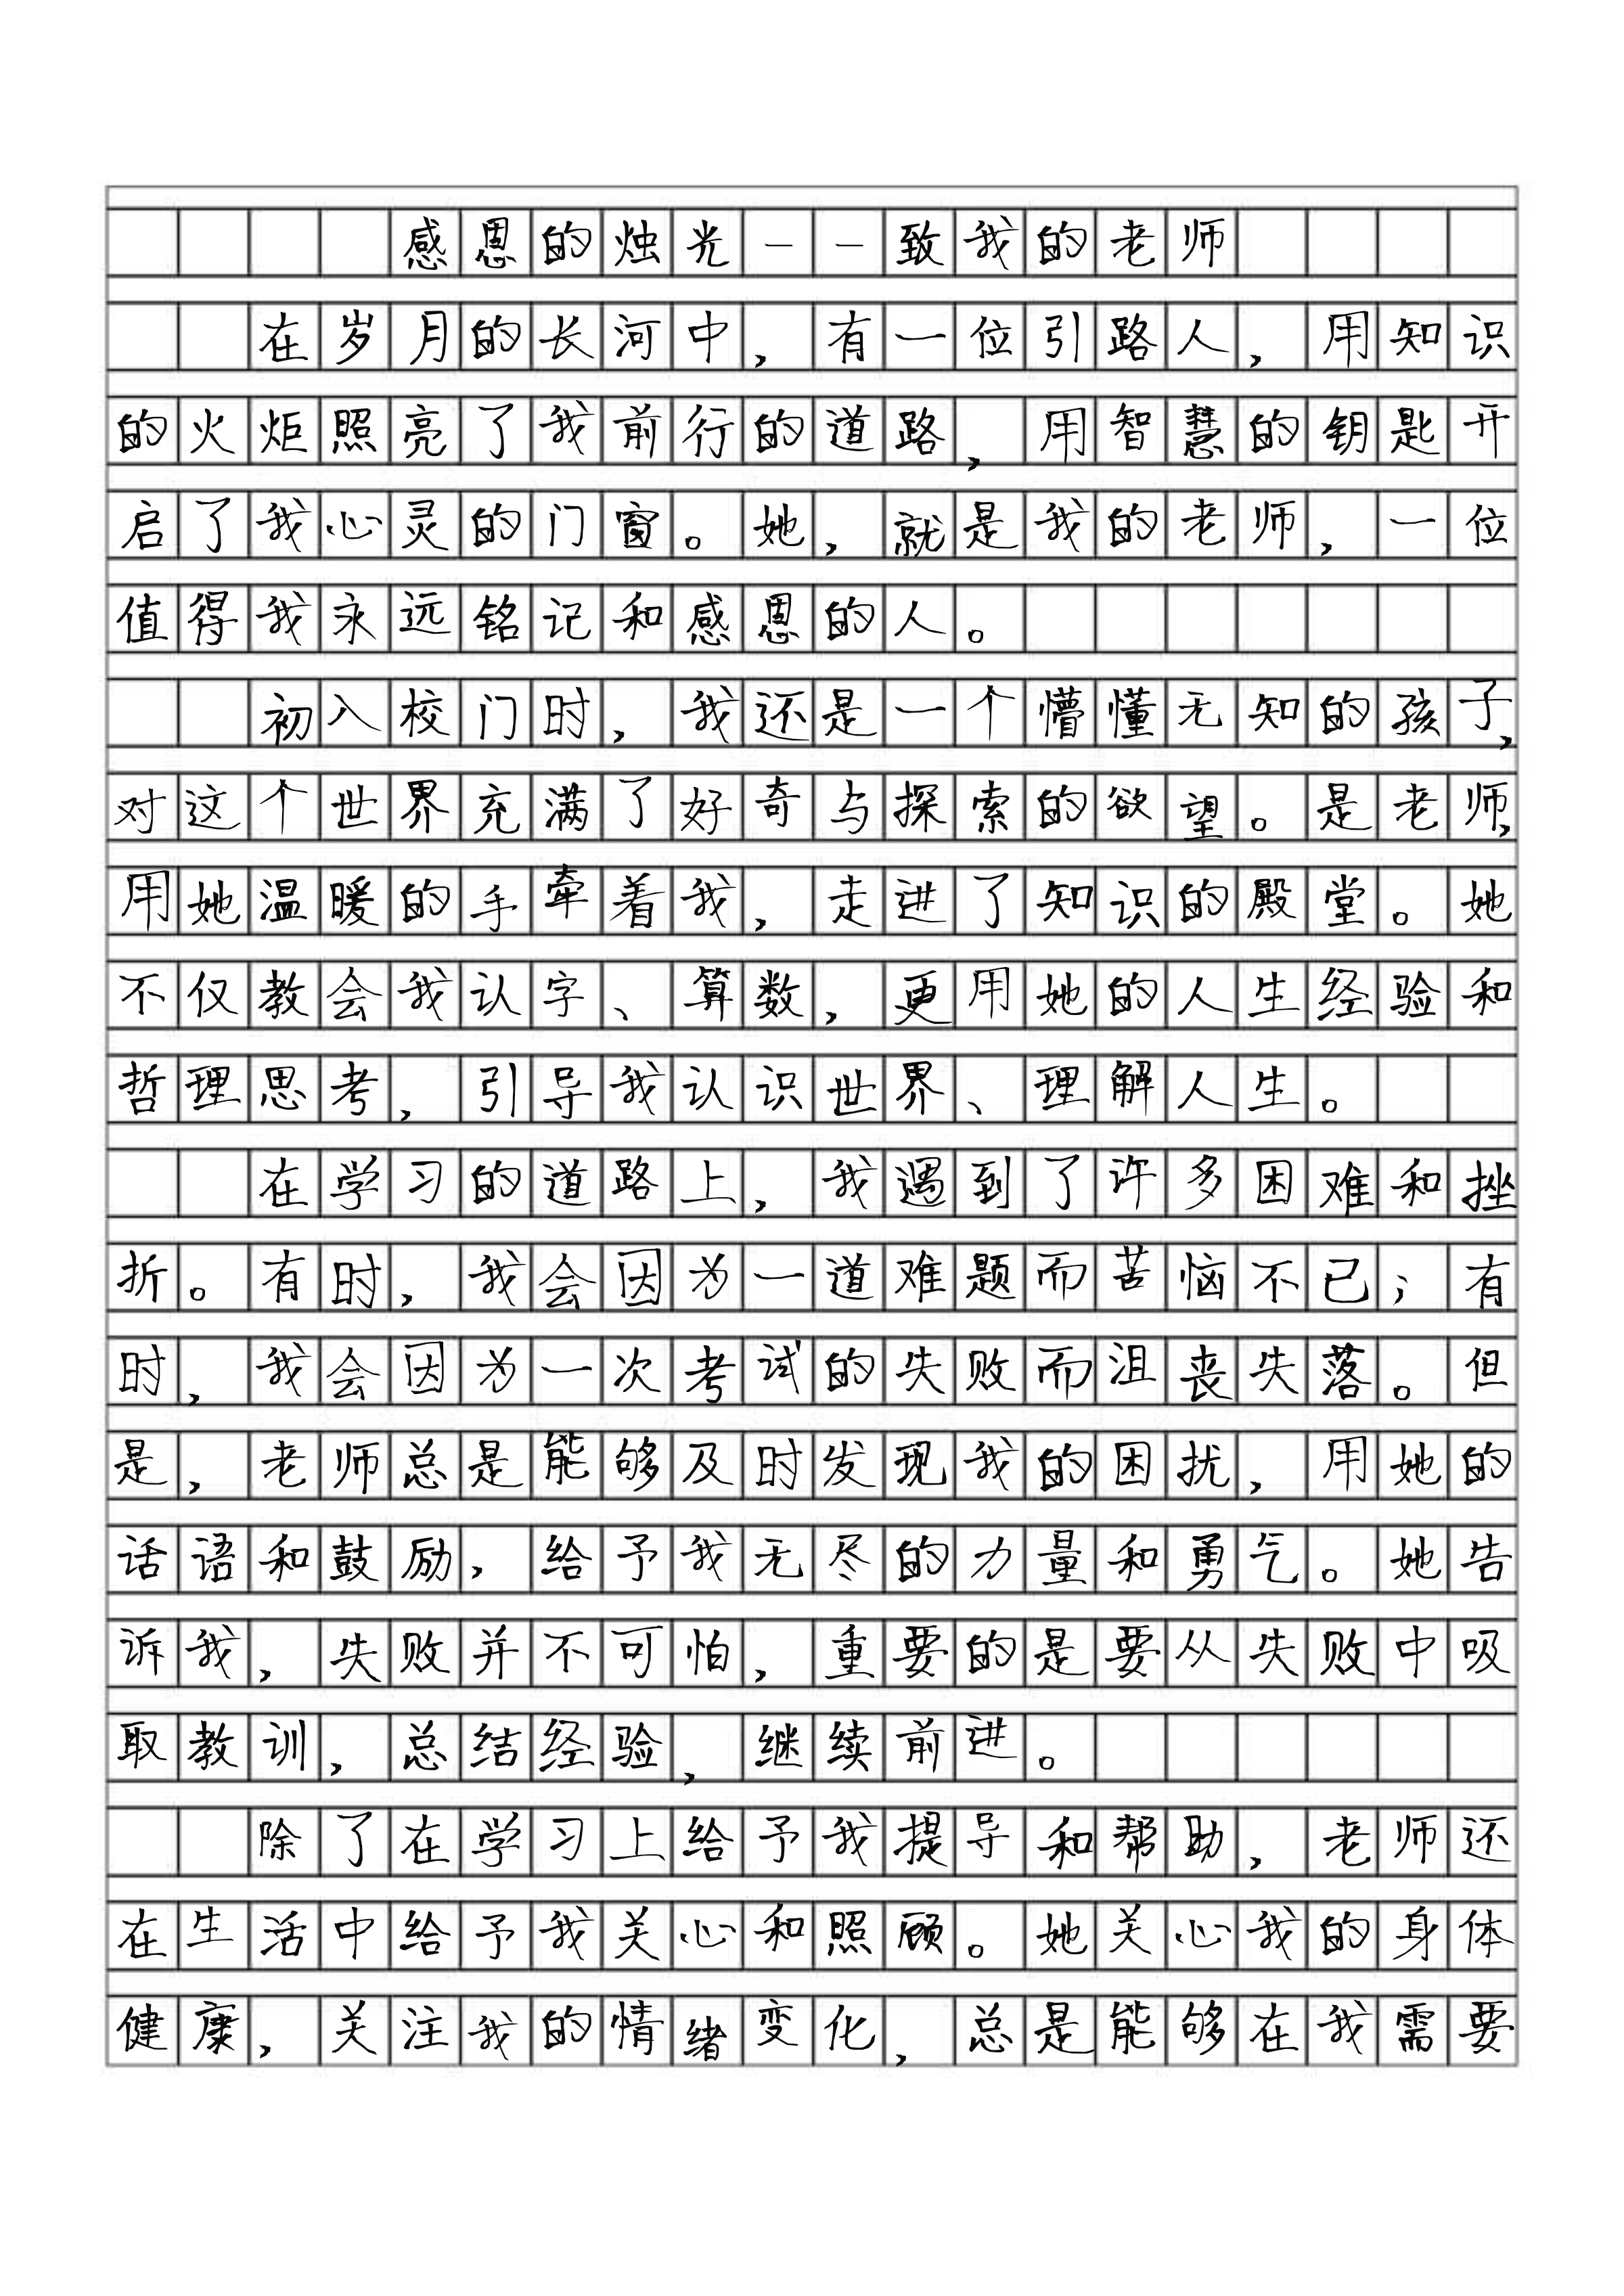 感恩的烛光——致我的老师
在岁月的长河中，有一位引路人，用知识
的火炬照亮了我前行的道路，用智慧的钥匙开
启了我心灵的门窗。她，就是我的老师，一位
值得我永远铭记和感恩的人。
初入校门时，我还是一个懵懂无知的孩子，
对这个世界充满了好奇与探索的欲望。是老师，
用她温暖的手牵着我，走进了知识的殿堂。她
不仅教会我认字、算数，更用她的人生经验和
哲理思考，引导我认识世界、理解人生。
在学习的道路上，我遇到了许多困难和挫
折。有时，我会因为一道难题而苦恼不已；有
时，我会因为一次考试的失败而沮丧失落。但
是，老师总是能够及时发现我的困扰，用她的
话语和鼓励，给予我无尽的力量和勇气。她告
诉我，失败并不可怕，重要的是要从失败中吸
取教训，总结经验，继续前进。
除了在学习上给予我提导和帮助，老师还
在生活中给予我关心和照顾。她关心我的身体
健康，关注我的情绪变化，总是能够在我需要